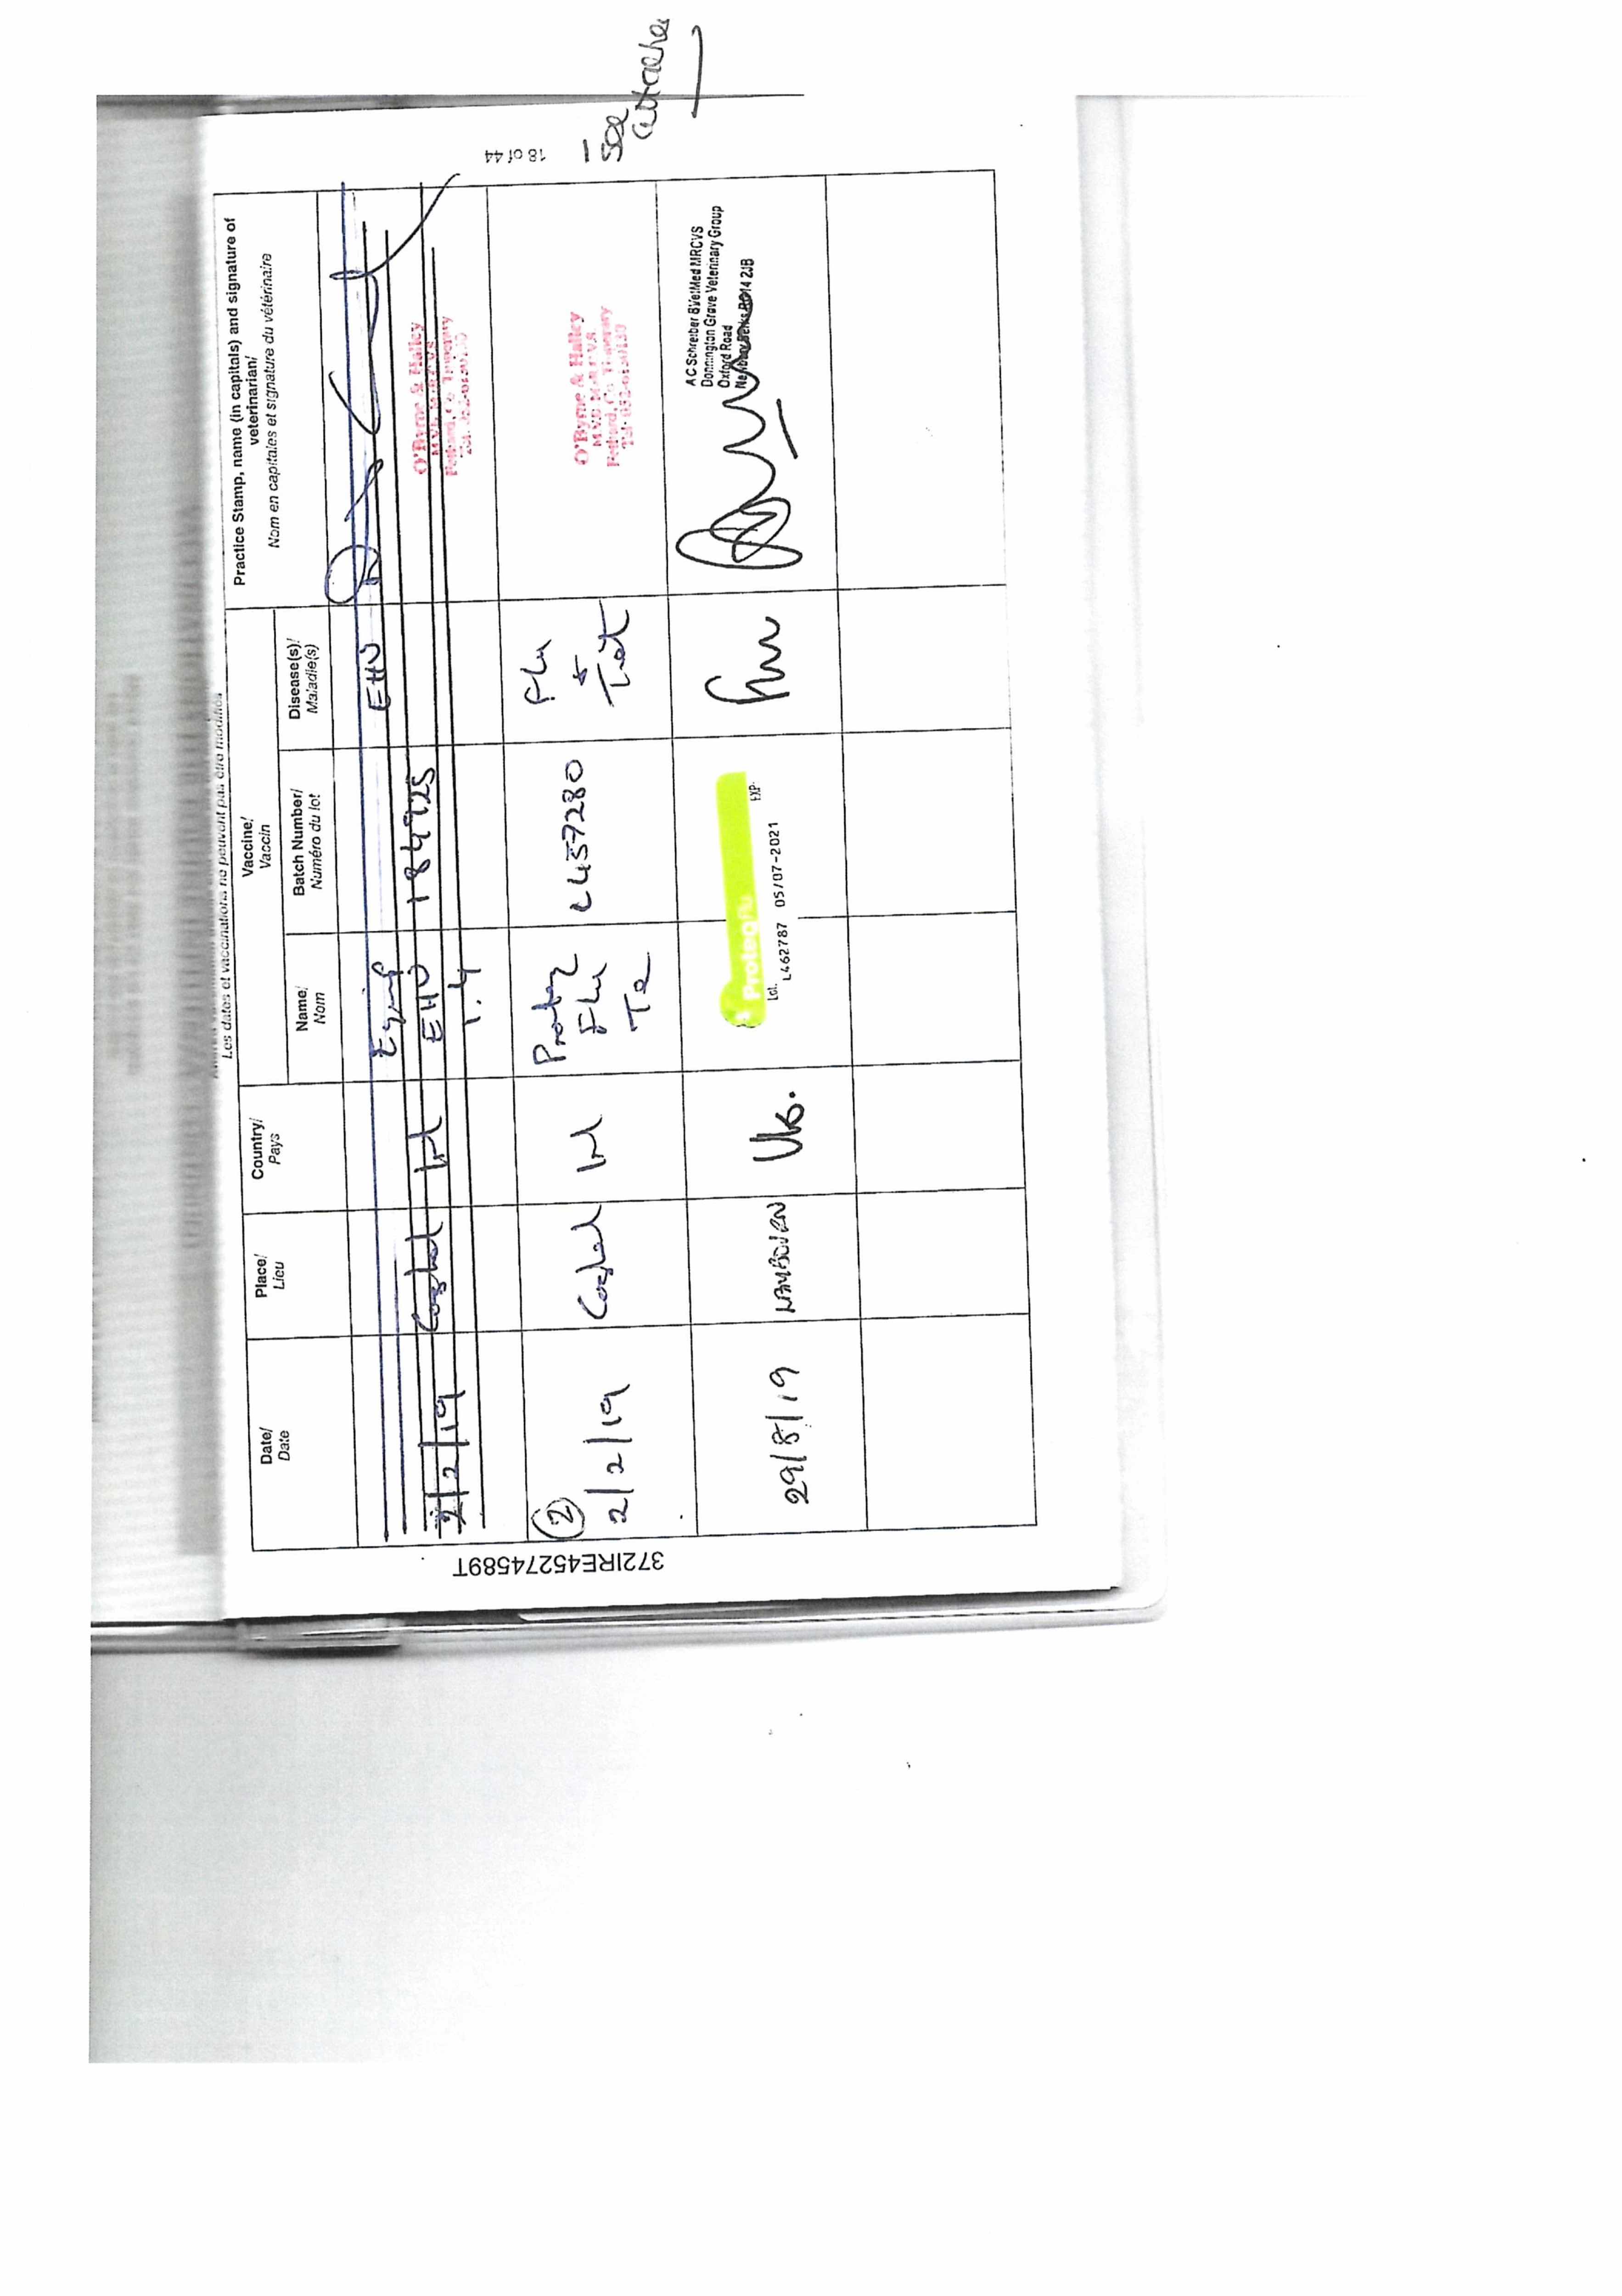 see
attached
18 of 44
Les dates et vaccinations ne peuvent pas être modifiés
Date/
Date
Place/
Lieu
Country/
Pays
Vaccine/
Vaccin
Name/
Nom
Batch Number/
Numéro du lot
Disease(s)/
Maladie(s)
Practice Stamp, name (in capitals) and signature of
veterinarian/
Nom en capitales et signature du vétérinaire
2/2/19
Cashel
Irl
Equip
EHV
1.4
184925
EHV
O'Byrne & Halley
M.V.B. M.R.C.V.S.
Fethard, Co. Tipperary
2
2/2/19
Cashel
Irl
Proteq
Flu
Te
L457280
Flu
&
Tet
O'Byrne & Halley
MVB M.R.C.V.S
Fethard, Co. Tipperary
29/8/19
LAMBOURN
UK.
ProteqFlu
Lot.
L462787 05/07-2021
EXP.
Flu
A C Schreiber BVetMed MRCVS
Donnington Grove Veterinary Group
Oxford Road
Newbury Berks RG14 2JB
372IRE45274589T